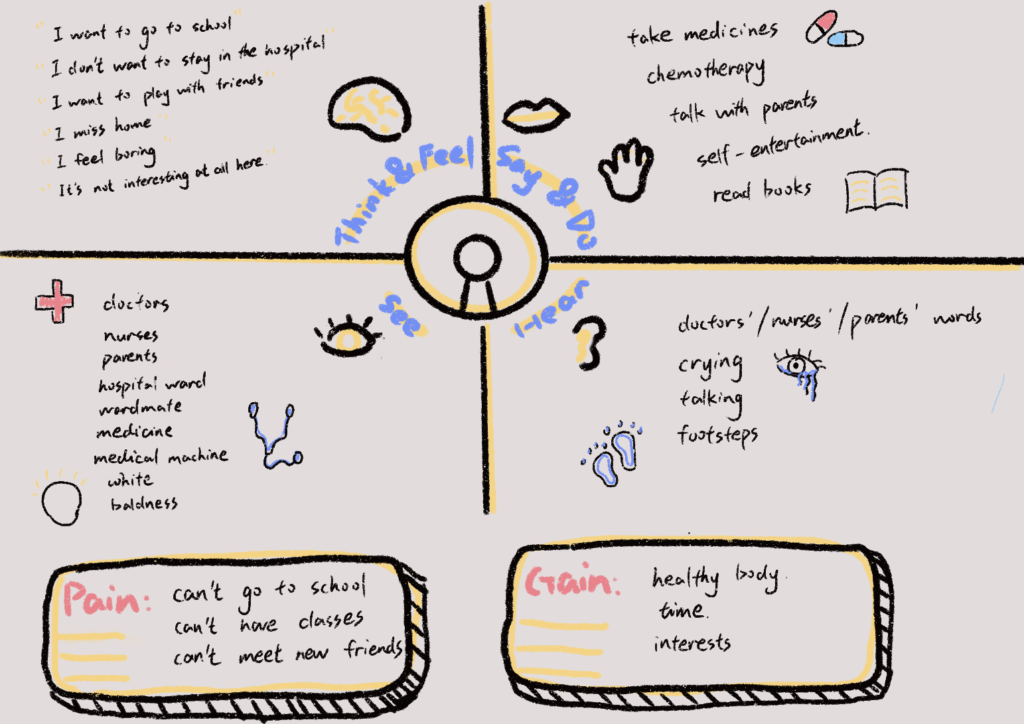 "I want to go to school"
"I don't want to stay in the hospital"
"I want to play with friends"
"I miss home"
"I feel boring"
"It's not interesting at all here."
Think & Feel
Say & Do
take medicines
chemotherapy
talk with parents
self-entertainment.
read books
See
doctors
nurses
parents
hospital ward
wardmate
medicine
medical machine
white
baldness
Hear
doctors'/nurses'/parents' words
crying
talking
footsteps
Pain:
can't go to school
can't have classes
can't meet new friends
Gain:
healthy body.
time.
interests